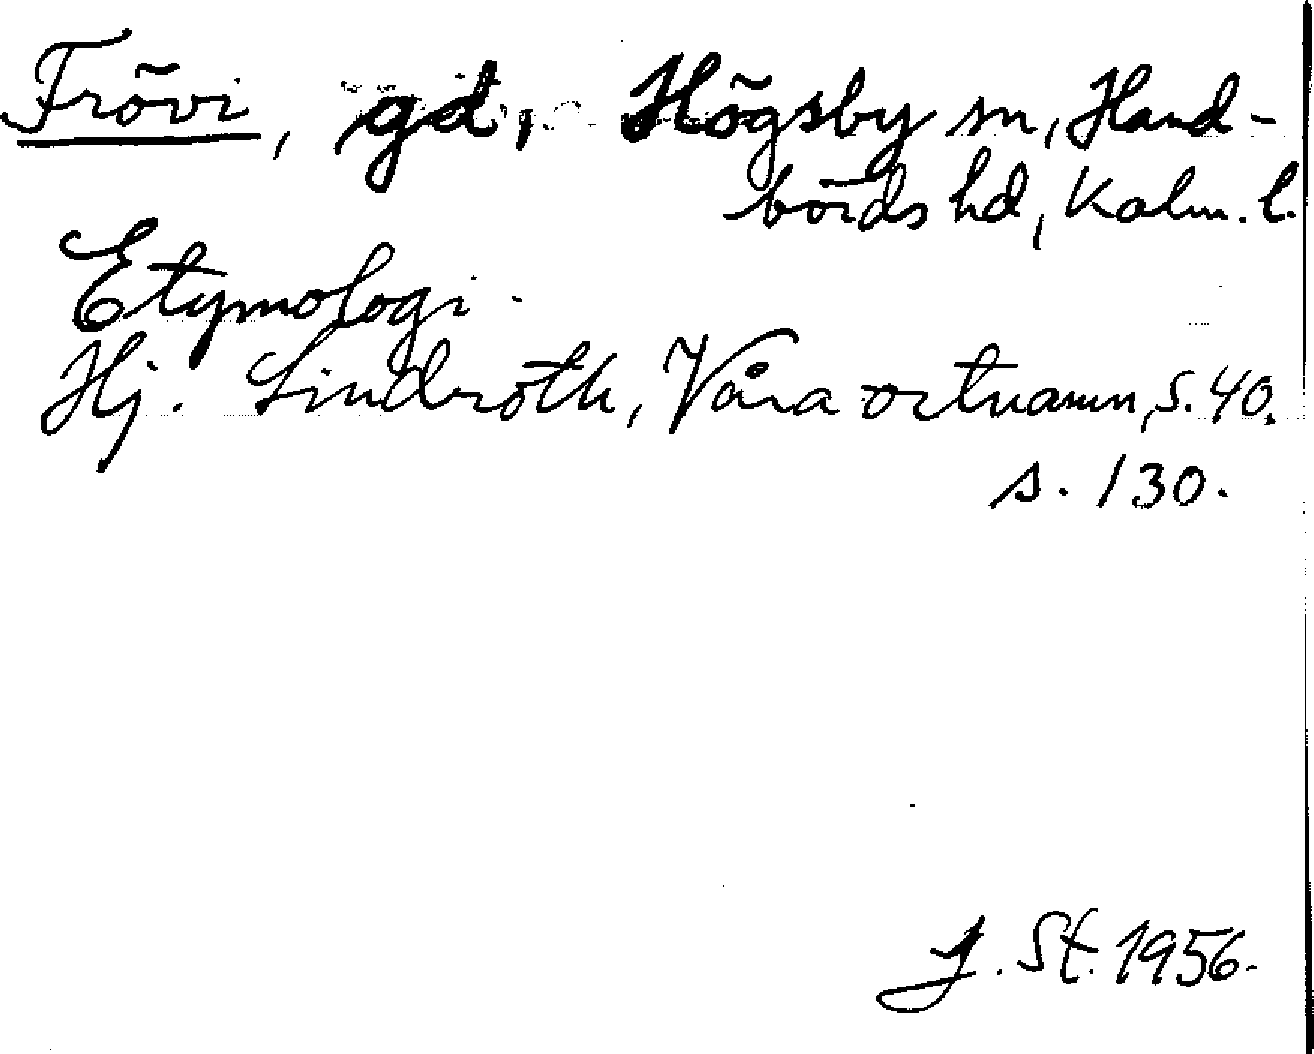 Frövi, gd, Högsby sn, Hand-
börds hd, Kalm. l.
Etymologi.
Hj. Lindroth, Våra ortnamn, s. 40.
s. 130.
J. St. 1956.